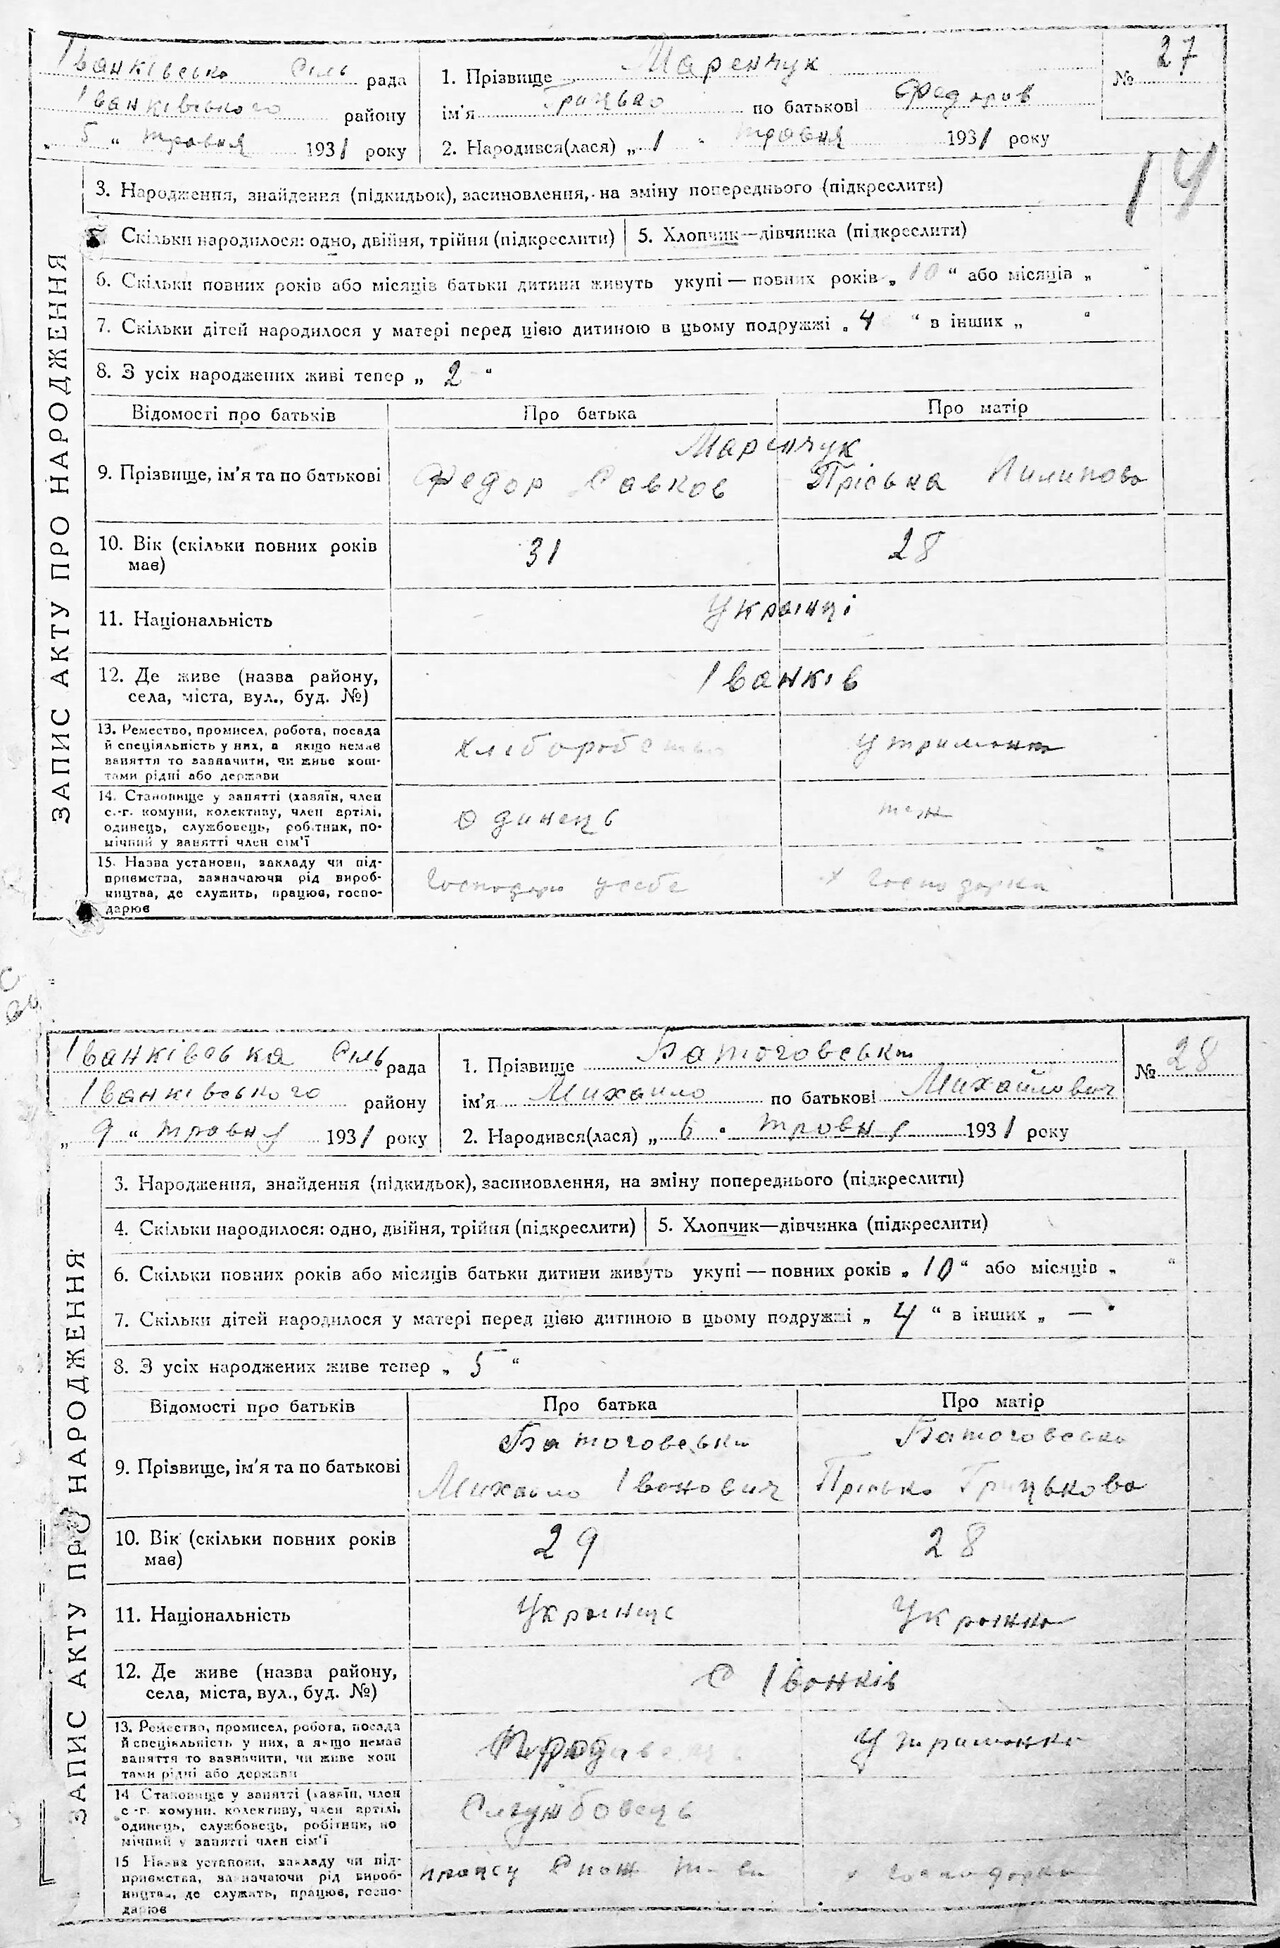 Іванківсько Сіль рада
Іванківського району
„ 5 “ травня 1931 року
1. Прізвище Маренчук
ім'я Грицько по батькові Федоров
2. Народився(лася) „ 1 “ травня 1931 року
№ 27
14
ЗАПИС АКТУ ПРО НАРОДЖЕННЯ
3. Народження, знайдення (підкидьок), засиновлення, на зміну попереднього (підкреслити)
Скільки народилося: одно, двійня, трійня (підкреслити)
5. Хлопчик—дівчинка (підкреслити)
6. Скільки повних років або місяців батьки дитини живуть укупі — повних років „ 10 “ або місяців „ “
7. Скільки дітей народилося у матері перед цією дитиною в цьому подружжі „ 4 “ в інших „ “
8. З усіх народжених живі тепер „ 2 “
Відомості про батьків Про батька Про матір
Маренчук
9. Прізвище, ім'я та по батькові Федор Савков Пріська Пилипова
10. Вік (скільки повних років має) 31 28
11. Національність Українці
12. Де живе (назва району, Іванків
села, міста, вул., буд. №)
13. Ремество, промисел, робота, посада
й спеціяльність у них, а якщо немає хліборобство утриманка
заняття то зазначити, чи живе кош-
тами рідні або держави
14. Становище у занятті (хазяїн, член
с.-г. комуни, колективу, член артілі, одинець теж
одинець, службовець, робітник, по-
мічний у занятті член сім'ї
15. Назва установи, закладу чи під-
приємства, зазначаючи рід вироб- господарю у себе господарка
ництва, де служить, працює, госпо-
дарює
Іванківська Сіль рада
Іванківського району
„ 9 “ травня 1931 року
1. Прізвище Батоговськи
ім'я Михайло по батькові Михайлович
2. Народився(лася) „ 6 “ травня 1931 року
№ 28
ЗАПИС АКТУ ПРО НАРОДЖЕННЯ
3. Народження, знайдення (підкидьок), засиновлення, на зміну попереднього (підкреслити)
4. Скільки народилося: одно, двійня, трійня (підкреслити)
5. Хлопчик—дівчинка (підкреслити)
6. Скільки повних років або місяців батьки дитини живуть укупі — повних років „ 10 “ або місяців „ “
7. Скільки дітей народилося у матері перед цією дитиною в цьому подружжі „ 4 “ в інших „ — “
8. З усіх народжених живе тепер „ 5 “
Відомості про батьків Про батька Про матір
Батоговськи Батоговська
9. Прізвище, ім'я та по батькові Михайло Іванович Пріська Грицькова
10. Вік (скільки повних років має) 29 28
11. Національність Українець Українка
12. Де живе (назва району, С Іванків
села, міста, вул., буд. №)
13. Ремество, промисел, робота, посада
й спеціяльність у них, а якщо немає утриманка
заняття то зазначити, чи живе кош
тами рідні або держави
14 Становище у занятті (хазяїн, член
с.-г. комуни, колективу, член артілі, Службовець
одинець, службовець, робітник, по
мічний у занятті член сім'ї
15 Назва установи, закладу чи під-
приємства, зазначаючи рід вироб- господарка
ництва, де служить, працює, госпо-
дарює